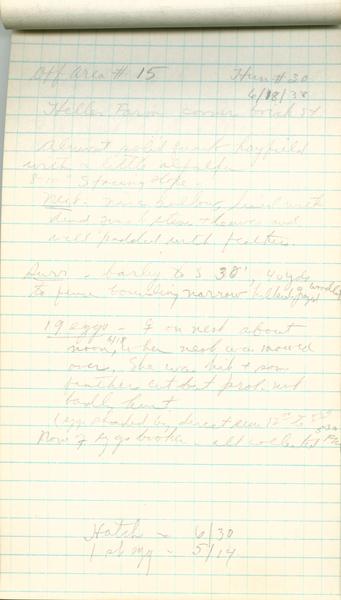 Off Area # 15 Hun # 30
6/18/38
Heller Farm corner
Almost solid quack hayfield
with a little alfalfa
8-10" S facing slope.
Nest - mere hollow, lined with
dead quack stems + leaves and
well padded with feathers.
Surr. - barley to S 30', 40 yds
to fence bounding narrow
19 eggs - ♀ on nest about
noon, 6/18 when nest was mowed
over. She was hit + some
feathers cut but prob. not
badly hurt
Eggs shaded by direct sun 12 to
None of eggs broken - all collected 5:30 PM
Hatch - 6/30
1st egg - 5/14